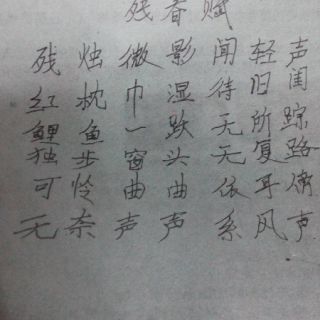 残春赋
残烛微影闻轻声
红枕巾湿待旧闺
鲤鱼一跃无所踪
独步窗头无复路
可怜曲曲依耳
无奈声声系风声